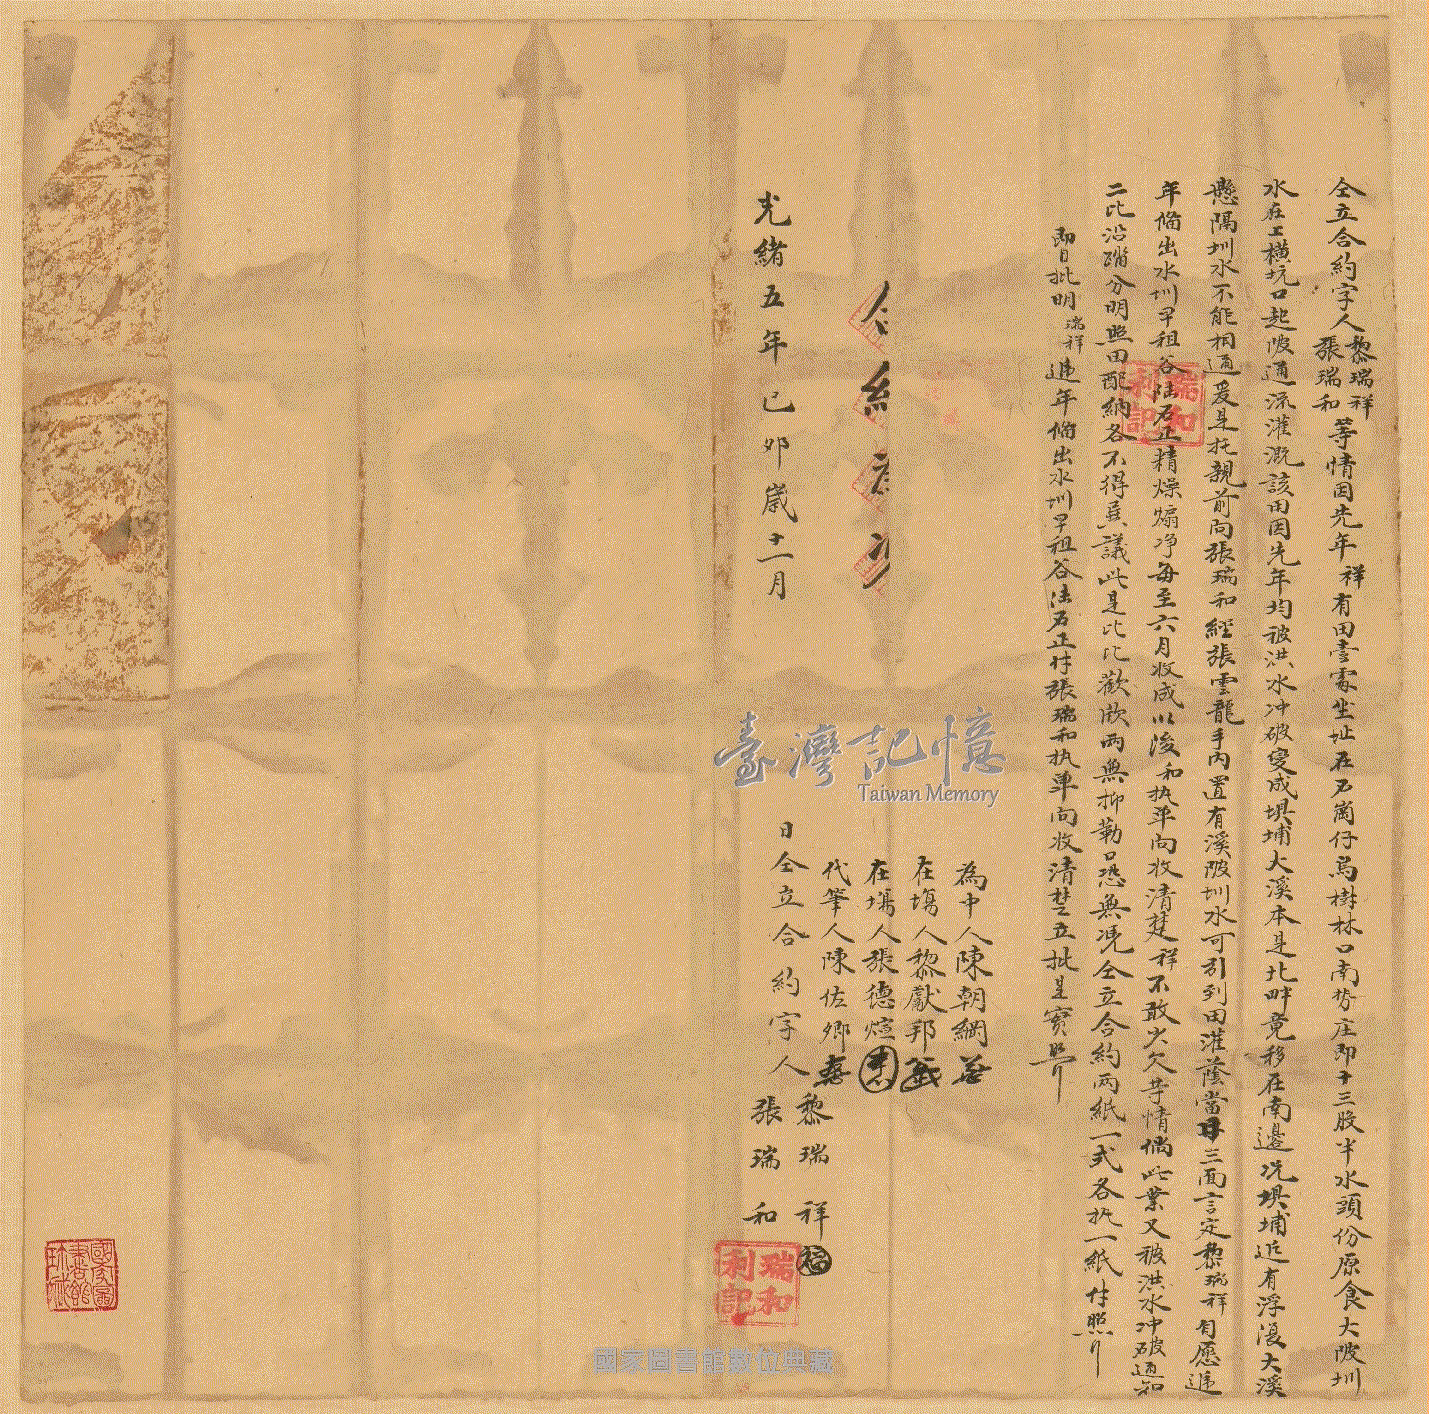 仝立合約字人黎瑞祥張瑞和等情因先年祥有田壹處坐址在石崗仔烏樹林口南势庄即十三股半水頭份原食大陂圳
水在工橫坑口起陂通流灌溉該田因先年均被洪水冲破变成埧埔大溪本是北畔竟移在南邊况埧埔近有浮復大溪
懸隔圳水不能相通爰是托親前向張瑞和經張雲龍手內置有溪陂圳水可引到田灌蔭當日三面言定黎瑞祥自愿遞
年俻出水圳早租谷陆石正精燥煽净每至六月收成以後和执单向收清楚祥不敢少欠等情倘此業又被洪水冲破通知
二比沿踏分明照田配納各不得異議此是比比歡欣兩無抑勒口恐無凴仝立合約兩紙一式各执一紙付照行
即日批明瑞祥遞年俻出水圳早租谷陆石正付張瑞和执单向收清楚立批是寔照行
瑞和
利記
為中人陳朝綱
在塲人黎獻邦
在塲人張德煊
代筆人陳佐卿
光緒五年己卯歲十二月
日仝立合約字人黎瑞祥
張瑞和
瑞和
利記
臺灣記憶
Taiwan Memory
國家圖書館數位典藏
國家圖
書館